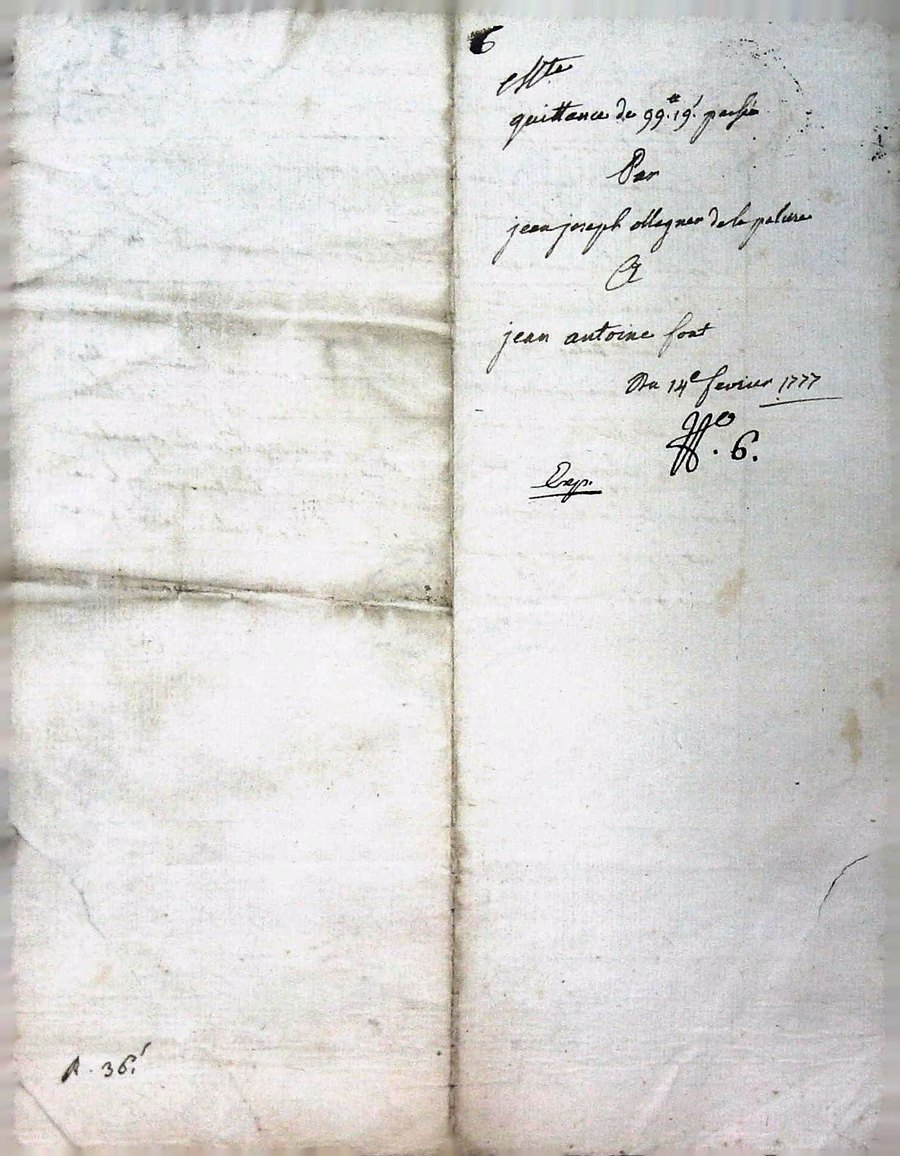 6
quittance de 99.# 19.s passée
Par
jean joseph ollagner de la palure
A
jean antoine font
Du 14e fevrier 1777
No. 6.
Exp.
R. 36.s